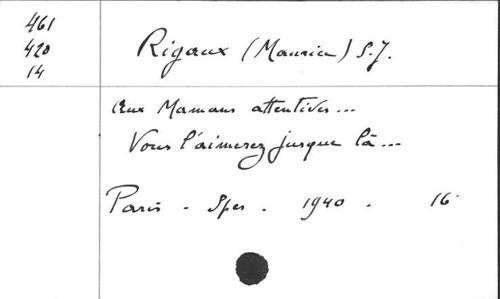 461
420
14
Rigaux (Maurice) S.J.
Aux Mamans attentives...
Vous l'aimerez jusque là...
Paris - Spes - 1940 - 16°